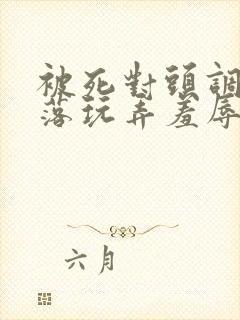 被死對頭調
落玩弄羞辱
六月